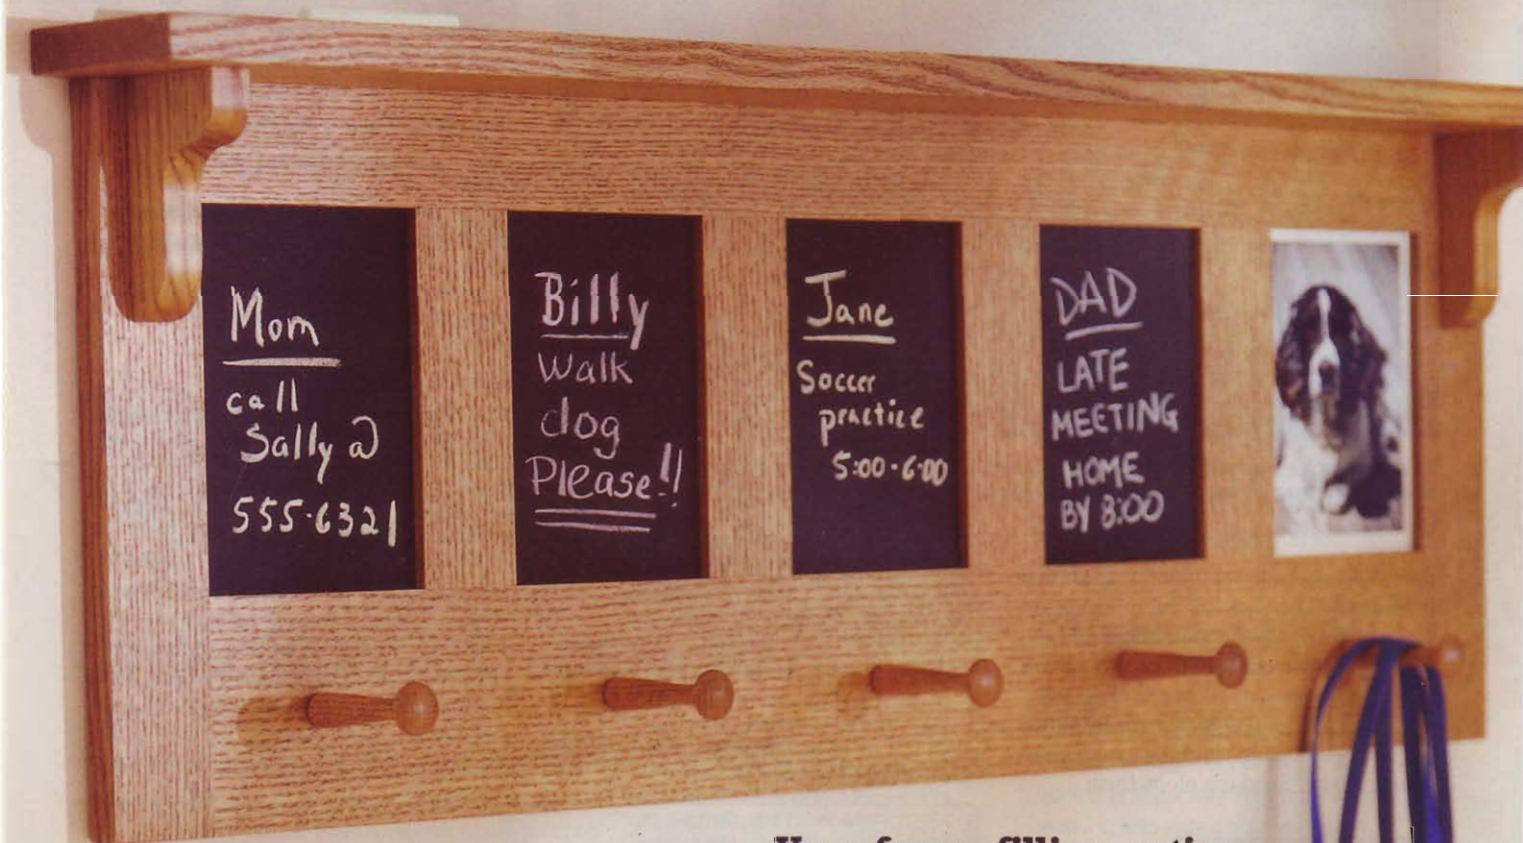 Mom
call
Sally @
555-6321
Billy
Walk
dog
Please!!
Jane
Soccer
practice
5:00-6:00
DAD
LATE
MEETING
HOME
BY 8:00